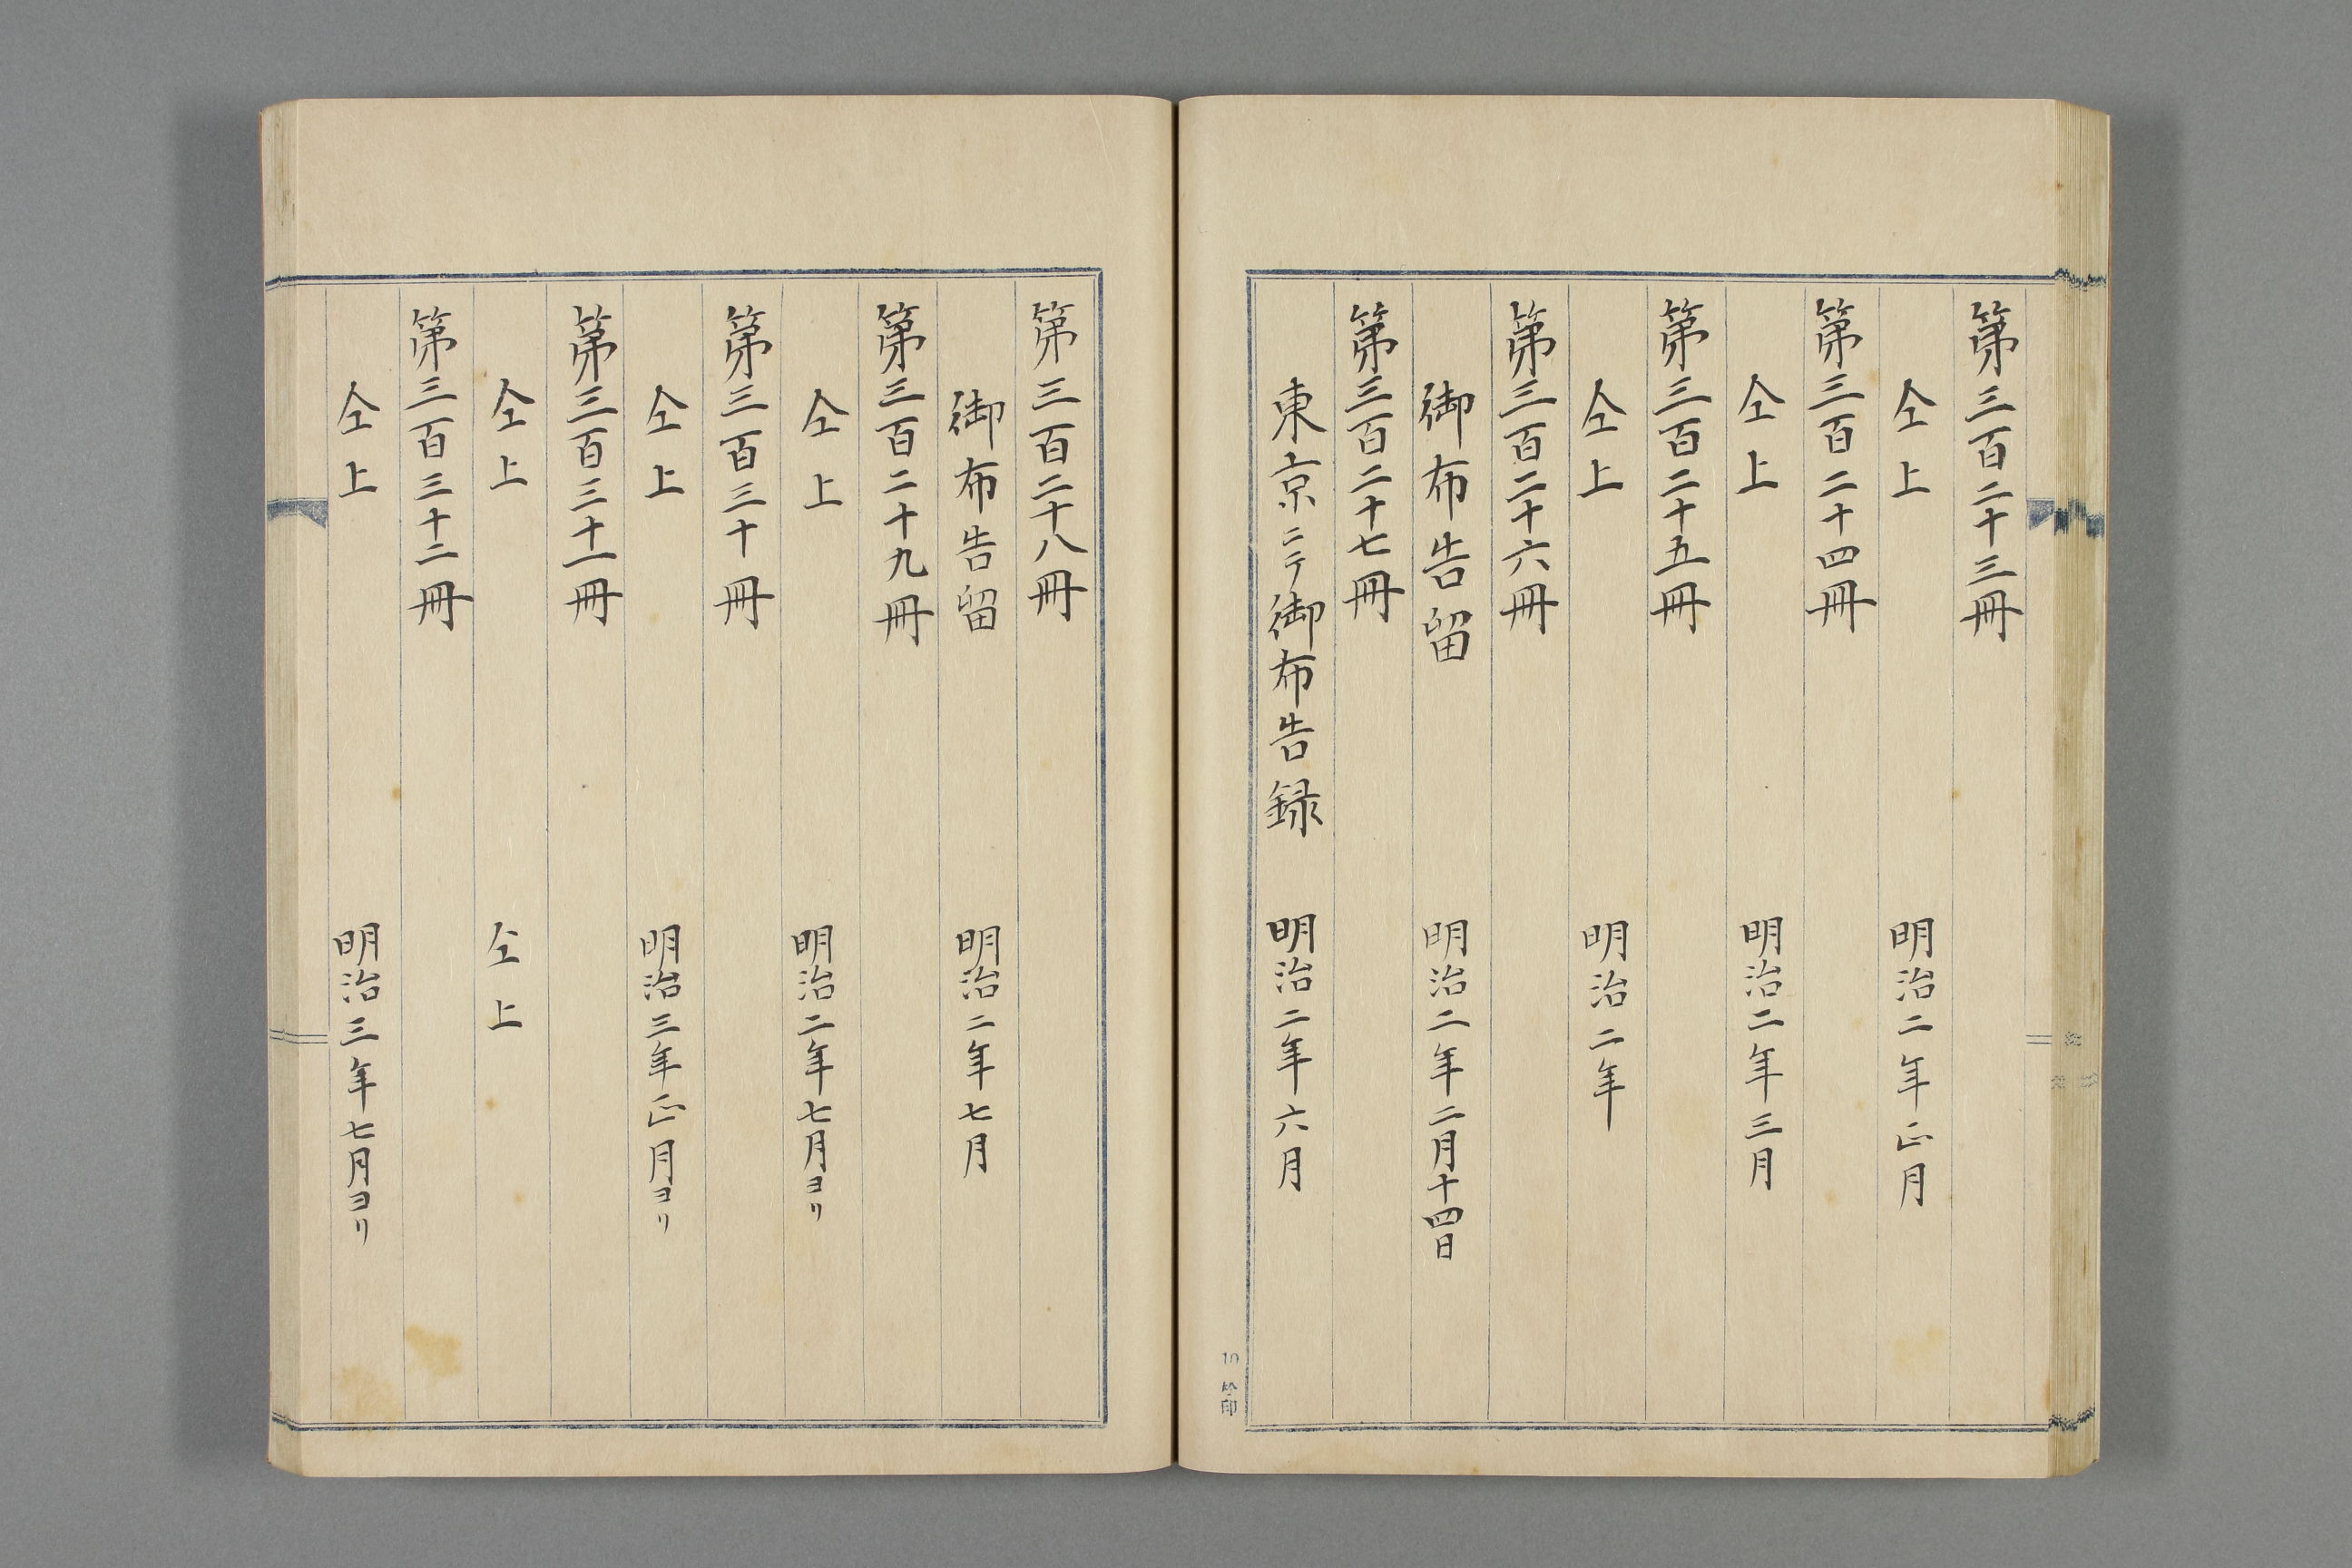 第三百二十三冊
仝上 明治二年正月
第三百二十四冊
仝上 明治二年三月
第三百二十五冊
仝上 明治二年
第三百二十六冊
御布告留 明治二年二月十四日
第三百二十七冊
東京ニテ御布告録 明治二年六月
第三百二十八冊
御布告留 明治二年七月
第三百二十九冊
仝上 明治二年七月ヨリ
第三百三十冊
仝上 明治三年正月ヨリ
第三百三十一冊
仝上 仝上
第三百三十二冊
仝上 明治三年七月ヨリ